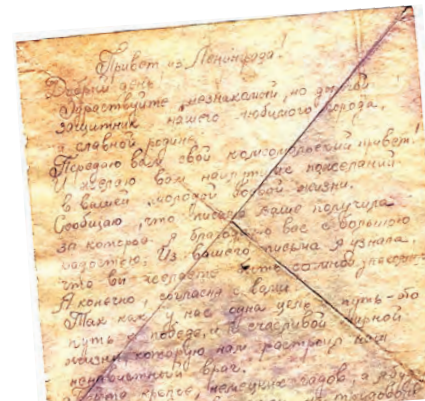 Привет из Ленинграда!
Добрый день!
Здравствуйте, незнакомый, но дорогой
защитник нашего любимого города,
а славной родины.
Передаю вам свой комсомольский привет!
И желаю вам наилучших пожеланий
в вашей молодой боевой жизни.
Сообщаю, что письмо ваше получила
за которое я благодарю вас с большою
радостью. Из вашего письма я узнала,
что вы желаете со мной
Я конечно, согласна с вами.
Так как у нас одна цель, путь-это
путь к победе, и к счасливой мирной
жизни которую нам растроил наш
ненавистный враг.
крепче, немецких гадов, а я